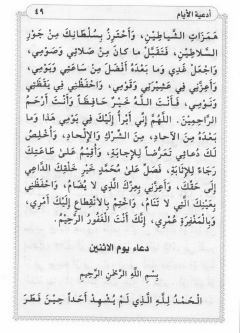 أدعية الأيام ٤٩
هَمَزَاتِ الشَّيَاطِينِ، وَأَحْتَرِزُ بِسُلْطَانِكَ مِنْ جَوْرِ
السَّلَاطِينِ، فَتَقَبَّلْ مَا كَانَ مِنْ صَلَاتِي وَصَوْمِي،
وَاجْعَلْ غَدِي وَمَا بَعْدَهُ أَفْضَلَ مِنْ سَاعَتِي وَيَوْمِي،
وَأَعِزَّنِي فِي عَشِيرَتِي وَقَوْمِي، وَاحْفَظْنِي فِي يَقْظَتِي
وَنَوْمِي، فَأَنْتَ اللَّهُ خَيْرٌ حَافِظاً وَأَنْتَ أَرْحَمُ
الرَّاحِمِينَ. اللَّهُمَّ إِنِّي أَبْرَأُ إِلَيْكَ فِي يَوْمِي هَذَا وَمَا
بَعْدَهُ مِنَ الآحَادِ، مِنَ الشِّرْكِ وَالإِلْحَادِ، وَأُخْلِصُ
لَكَ دُعَائِي تَعَرُّضاً لِلإِجَابَةِ، وَأُقِيمُ عَلَى طَاعَتِكَ
رَجَاءً لِلإِثَابَةِ، فَصَلِّ عَلَى مُحَمَّدٍ خَيْرِ خَلْقِكَ الدَّاعِي
إِلَى حَقِّكَ، وَأَعِزَّنِي بِعِزِّكَ الَّذِي لَا يُضَامُ، وَاحْفَظْنِي
بِعَيْنِكَ الَّتِي لَا تَنَامُ، وَاخْتِمْ بِالانْقِطَاعِ إِلَيْكَ أَمْرِي،
وَبِالْمَغْفِرَةِ عُمْرِي، إِنَّكَ أَنْتَ الْغَفُورُ الرَّحِيمُ.
دعاء يوم الاثنين
بِسْمِ اللَّهِ الرَّحْمَنِ الرَّحِيمِ
الْحَمْدُ لِلَّهِ الَّذِي لَمْ يُشْهِدْ أَحَداً حِينَ فَطَرَ